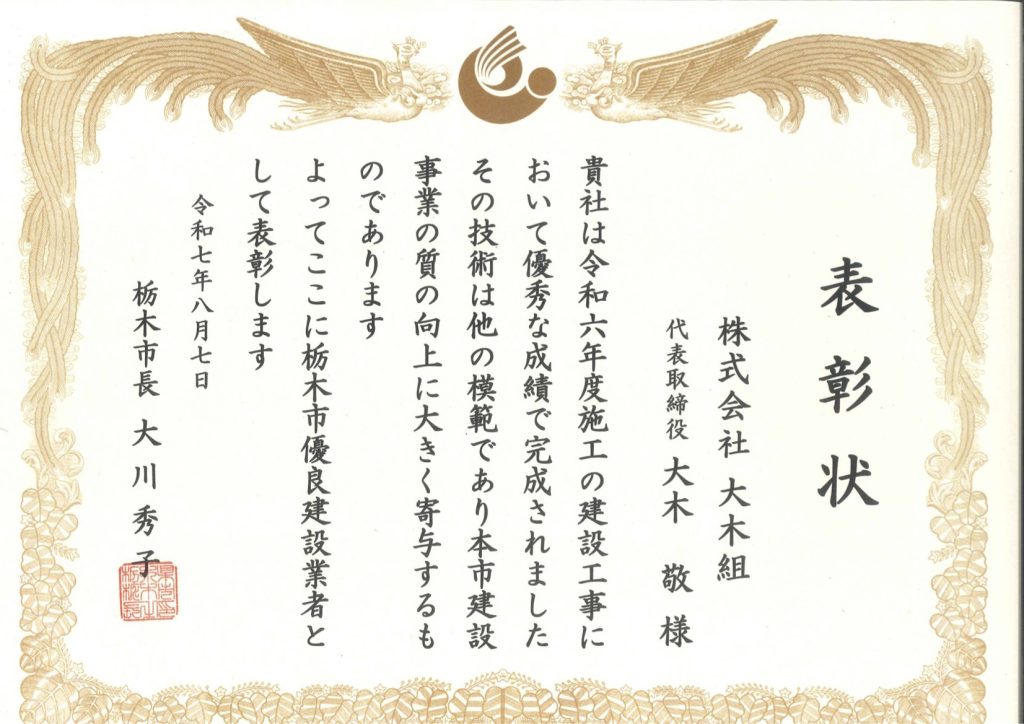 表彰状
株式会社 大木組
代表取締役 大木 敬 様
貴社は令和六年度施工の建設工事に
おいて優秀な成績で完成されました
その技術は他の模範であり本市建設
事業の質の向上に大きく寄与するも
のであります
よってここに栃木市優良建設業者と
して表彰します
令和七年八月七日
栃木市長 大川秀子